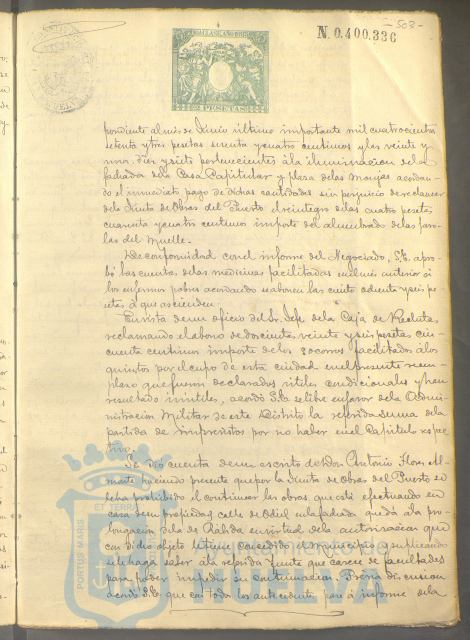 - 503 -
N. 0.400.336
2 PESETAS
pondiente al mes de Junio último importante mil cuatrocientas
setenta y tres pesetas sesenta y cuatro centimos y las veinte y
una, diez y siete pertenecientes á la iluminacion de la
fachada de la Casa Capitular y plaza de las Monjas acordan-
do el inmediato pago de dichas cantidades sin perjuicio de reclamar
de la Junta de Obras del Puerto el reintegro de las cuatro pesetas
cuarenta y cuatro centimos importe del alumbrado de las faro-
las del Muelle.
De conformidad con el informe del Negociado, S.E. apro-
bó las cuentas de las medicinas facilitadas en el mes anterior á
los enfermos pobres acordando se abonen las ciento ochenta y seis pe-
setas á que ascienden.
En vista de un oficio del Sr. Jefe de la Caja de Reclutas
reclamando el abono de doscientas veinte y seis pesetas cin-
cuenta centimos importe de los socorros facilitados á los
quintos por el cupo de esta ciudad en el presente reem-
plazo que fueron declarados utiles condicionales y han
resultado inutiles, acordó S.E. se libre en favor de la Admi-
nistracion Militar de este Distrito la referida suma de la
partida de imprevistos por no haber en el Capitulo respec-
tivo.
Se dió cuenta de un escrito de Don Antonio Flores Al-
monte haciendo presente que por la Junta de Obras del Puerto se
le ha prohibido el continuar las obras que está efectuando en
casa de su propiedad calle de Odiel en la fachada que dá á la pro-
longacion de la de Rábida en virtud de la autorizacion que
con dicho objeto le tiene concedido el municipio y suplicando
se le haga saber á la referida Junta que carece de facultades
para poder impedir su continuacion. Prévia discusion
acordó S.E. que con todos los antecedentes pase á informe de la
PORTUS MARIS ET TERRAE
Ayuntamiento de
HUELVA